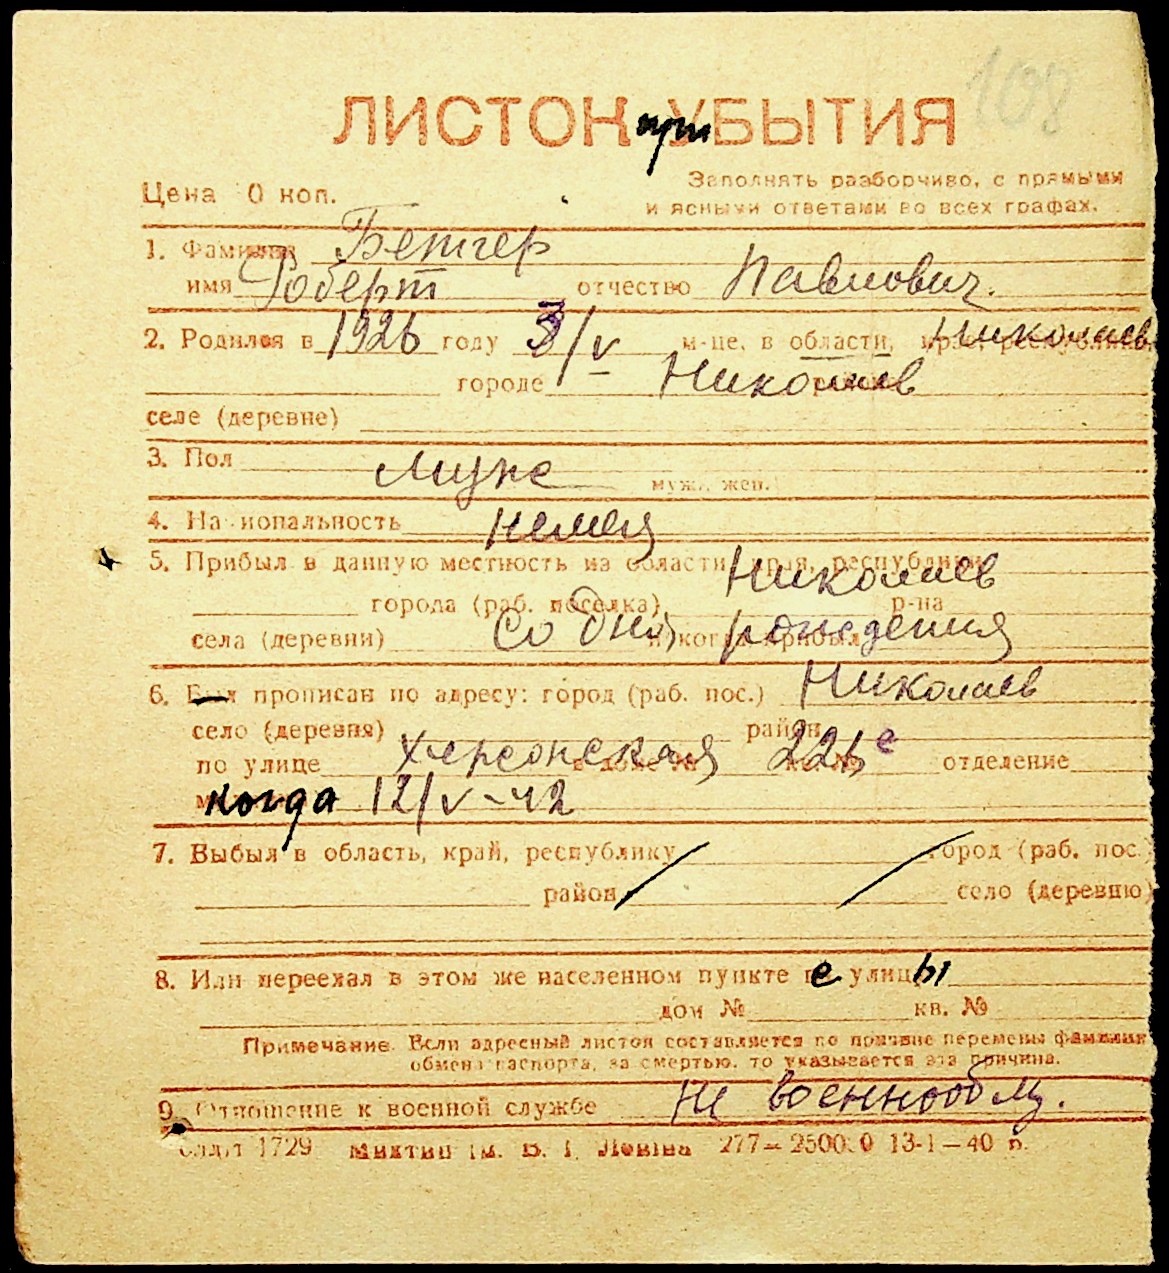 108
ЛИСТОК при УБЫТИЯ
Цена 0 коп.
Заполнять разборчиво, с прямыми
и ясными ответами во всех графах.
1. Фамилия Бетгер
имя Роберт отчество Павлович.
2. Родился в 1926 году 3/V м-це, в области, Николаев
городе Николаев
селе (деревне)
3. Пол муж муж., жен.
4. Национальность немец
5. Прибыл в данную местность из области, края, республики Николаев
города (раб. поселка) р-на
села (деревни) и когда прибыл со дня рождения
6. Был прописан по адресу: город (раб. пос.) Николаев
село (деревня) район
по улице Херсонская 22 отделение
когда 12/V-42
7. Выбыл в область, край, республику город (раб. пос.)
район село (деревню)
8. Или переехал в этом же населенном пункте с улицы
дом № кв. №
Примечание. Если адресный листок составляется по причине перемены фамилии
обмена паспорта, за смертью, то указывается эта причина.
9. Отношение к военной службе Не военнообяз.
1729 13-1-40 р.